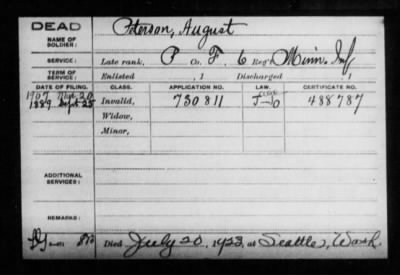 DEAD
NAME OF SOLDIER:
Peterson, August
SERVICE:
Late rank, P Co. F, 6 Reg't Minn. Inf
TERM OF SERVICE:
Enlisted , 1 Discharged , 1
DATE OF FILING. CLASS. APPLICATION NO. LAW. CERTIFICATE NO.
1907
1889 Sept 25 Invalid, 730811 488787
Widow,
Minor,
ADDITIONAL SERVICES:
REMARKS:
Died July 20, 1923, at Seattle, Wash.